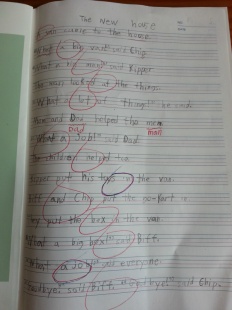 The New house
A van came to the house
What a big van! said Chip
What a big man! said Kipper
The man looked at the things.
What a lot of things! he said.
Mum and Dad helped the men
Dad men
What a Job! said Dad.
The children helped too.
Kipper put his toys in the van.
Biff and Chip put the go-kart in
put the box in the van
What a big box! said Biff.
What a Job! said everyone.
Goodbye. said Biff. Goodbye! said Chip.